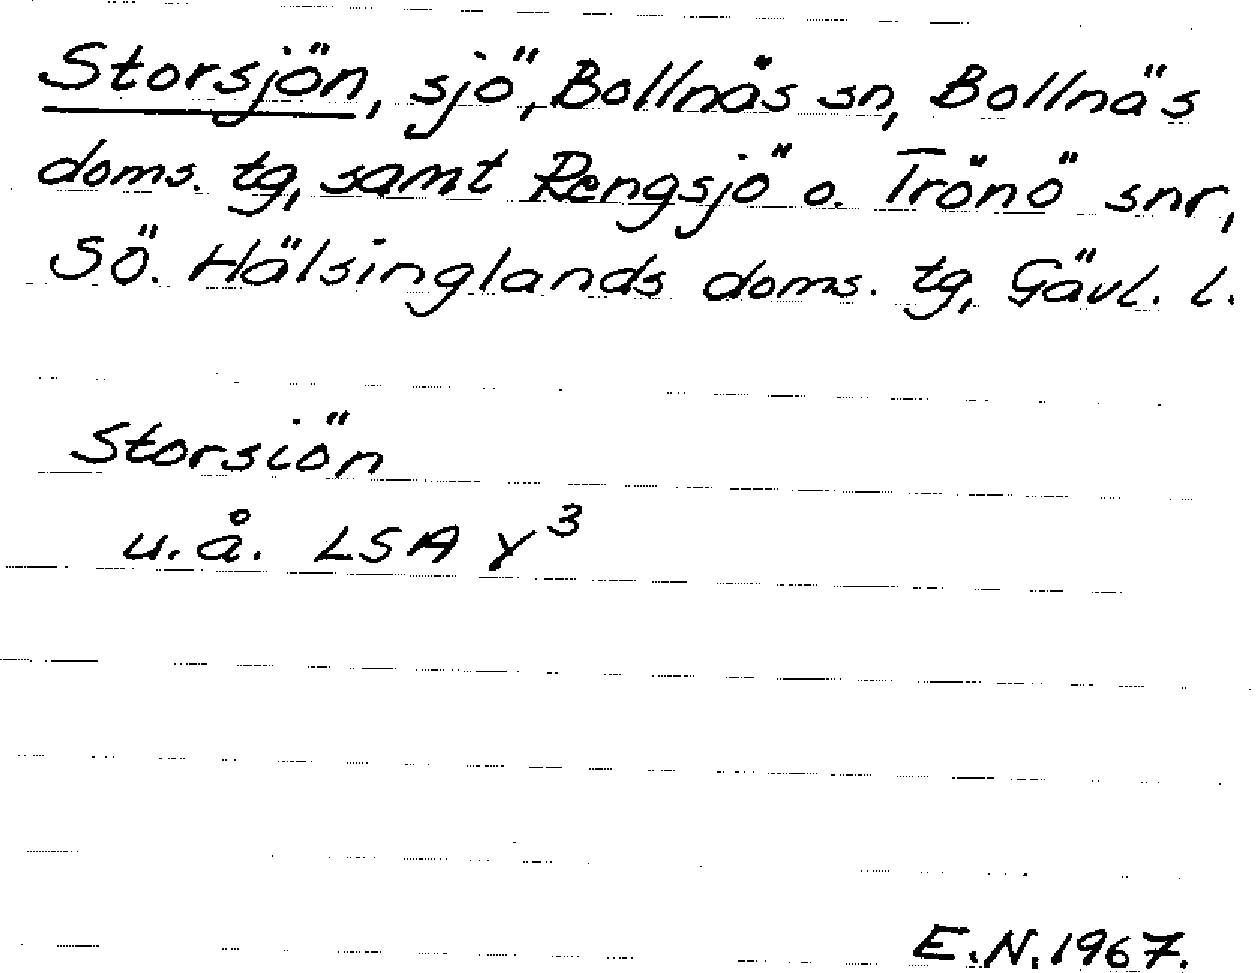 Storsjön, sjö, Bollnäs sn, Bollnäs
doms. tg, samt Rengsjö o. Trönö snr,
Sö. Hälsinglands doms. tg, Gävl. l.
Storsiön
u.å. LSA γ³
E.N. 1967.